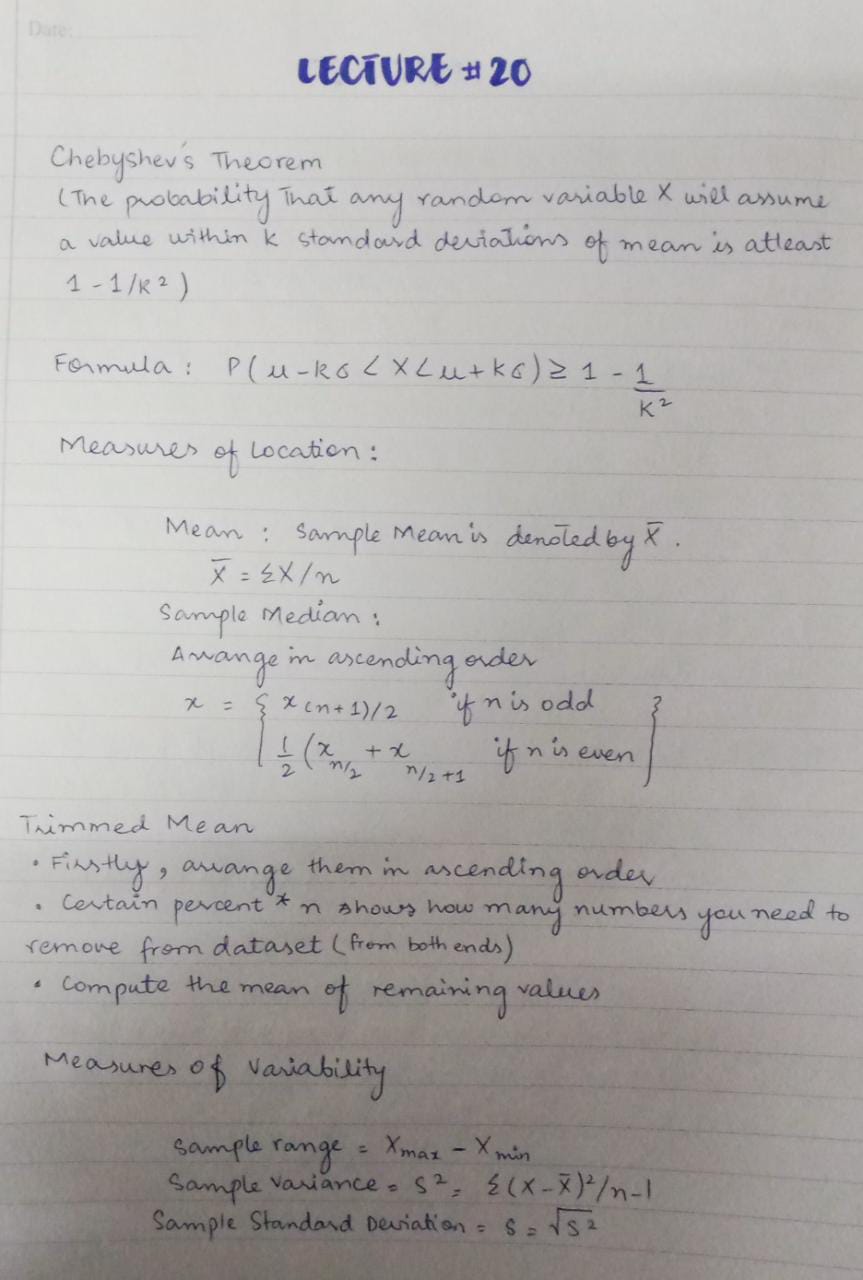 Date:
LECTURE # 20
Chebyshev's Theorem
(The probability that any random variable X will assume
a value within k standard deviations of mean is atleast
1 - 1/k²)
Formula : P(μ-kσ < X < μ+kσ) ≥ 1 - 1/k²
Measures of Location :
Mean : Sample Mean is denoted by X̄ .
X̄ = ΣX/n
Sample Median :
Arrange in ascending order
x = { x (n+1)/2 if n is odd }
1/2 (x n/2 + x n/2+1 if n is even
Trimmed Mean
• Firstly, arrange them in ascending order
• Certain percent * n shows how many numbers you need to
remove from dataset (from both ends)
• Compute the mean of remaining values
Measures of Variability
Sample range = Xmax - Xmin
Sample Variance = S² = Σ(X-X̄)²/n-1
Sample Standard Deviation = S = √S²